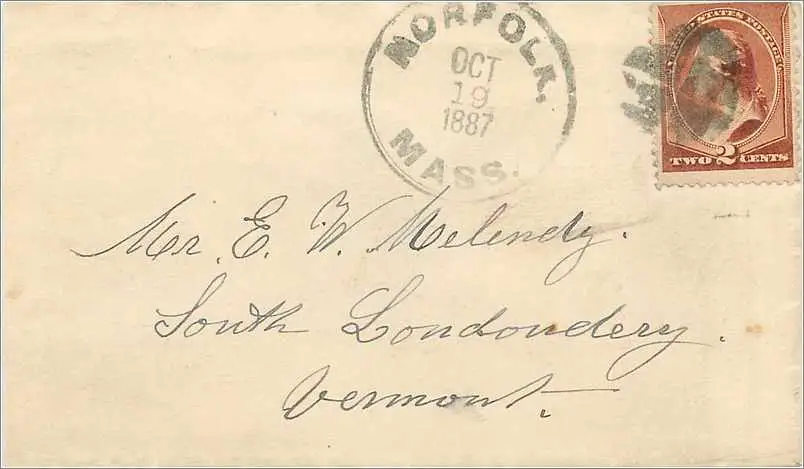 NORFOLK,
OCT
19
1887
MASS.
UNITED STATES POSTAGE
TWO 2 CENTS
Mr. E. W. Melendy.
South Londondery.
Vermont.